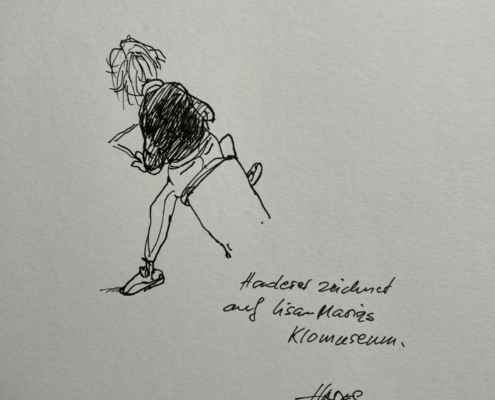 Haderer zeichnet
auf Lisa-Marias
Klomuseum.